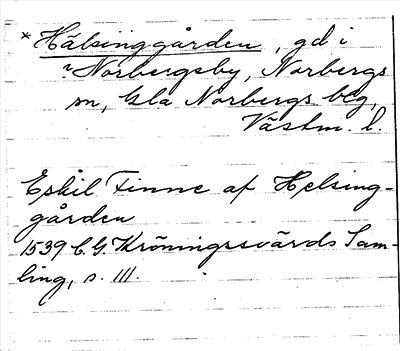 * Hälsinggården, gd i
? Norbergsby, Norbergs
sn, Gla Norbergs blg,
Västm. l.
Eskil Finne af Helsing-
gården
1539 C.G. Kröningssvärds Sam-
ling, s. 111.